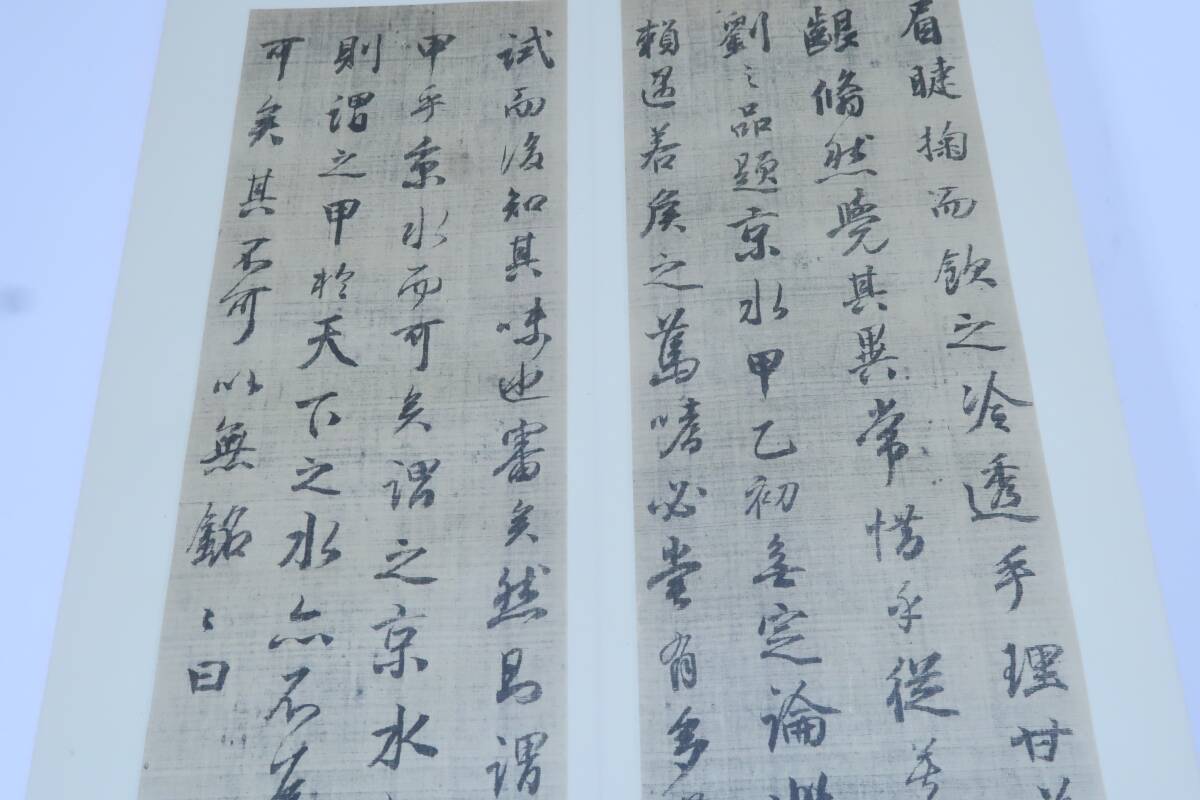 眉睫掬而飲之冷透乎理甘
齦翛然覺其異常惜乎從
劉之品題京水甲乙初無定論
賴遇若矦之篤嗜必嘗有多
試而後知其味也審矣然曷謂
甲乎京水而可矣謂之京水
則謂之甲於天下之水亦不
可矣其不可以無銘〻曰